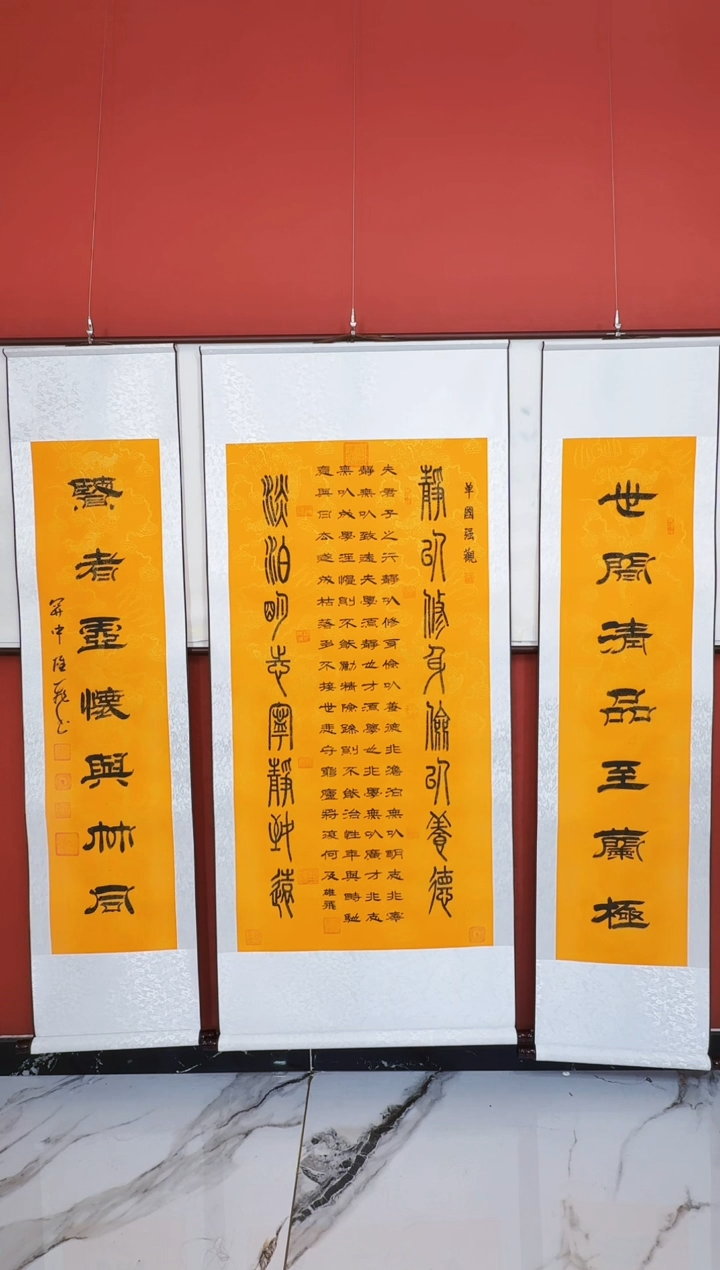 世間清品至蘭極
單國強觀
靜以修身儉以養德
夫君子之行靜以修身儉以養德非澹泊無以明志非寧
靜無以致遠夫學須靜也才須學也非學無以廣才非志
無以成學淫慢則不能勵精險躁則不能治性年與時馳
意與日去遂成枯落多不接世悲守窮廬將復何及雄飛
淡泊明志寧靜致遠
賢者虛懷與竹同
關中雄飛书